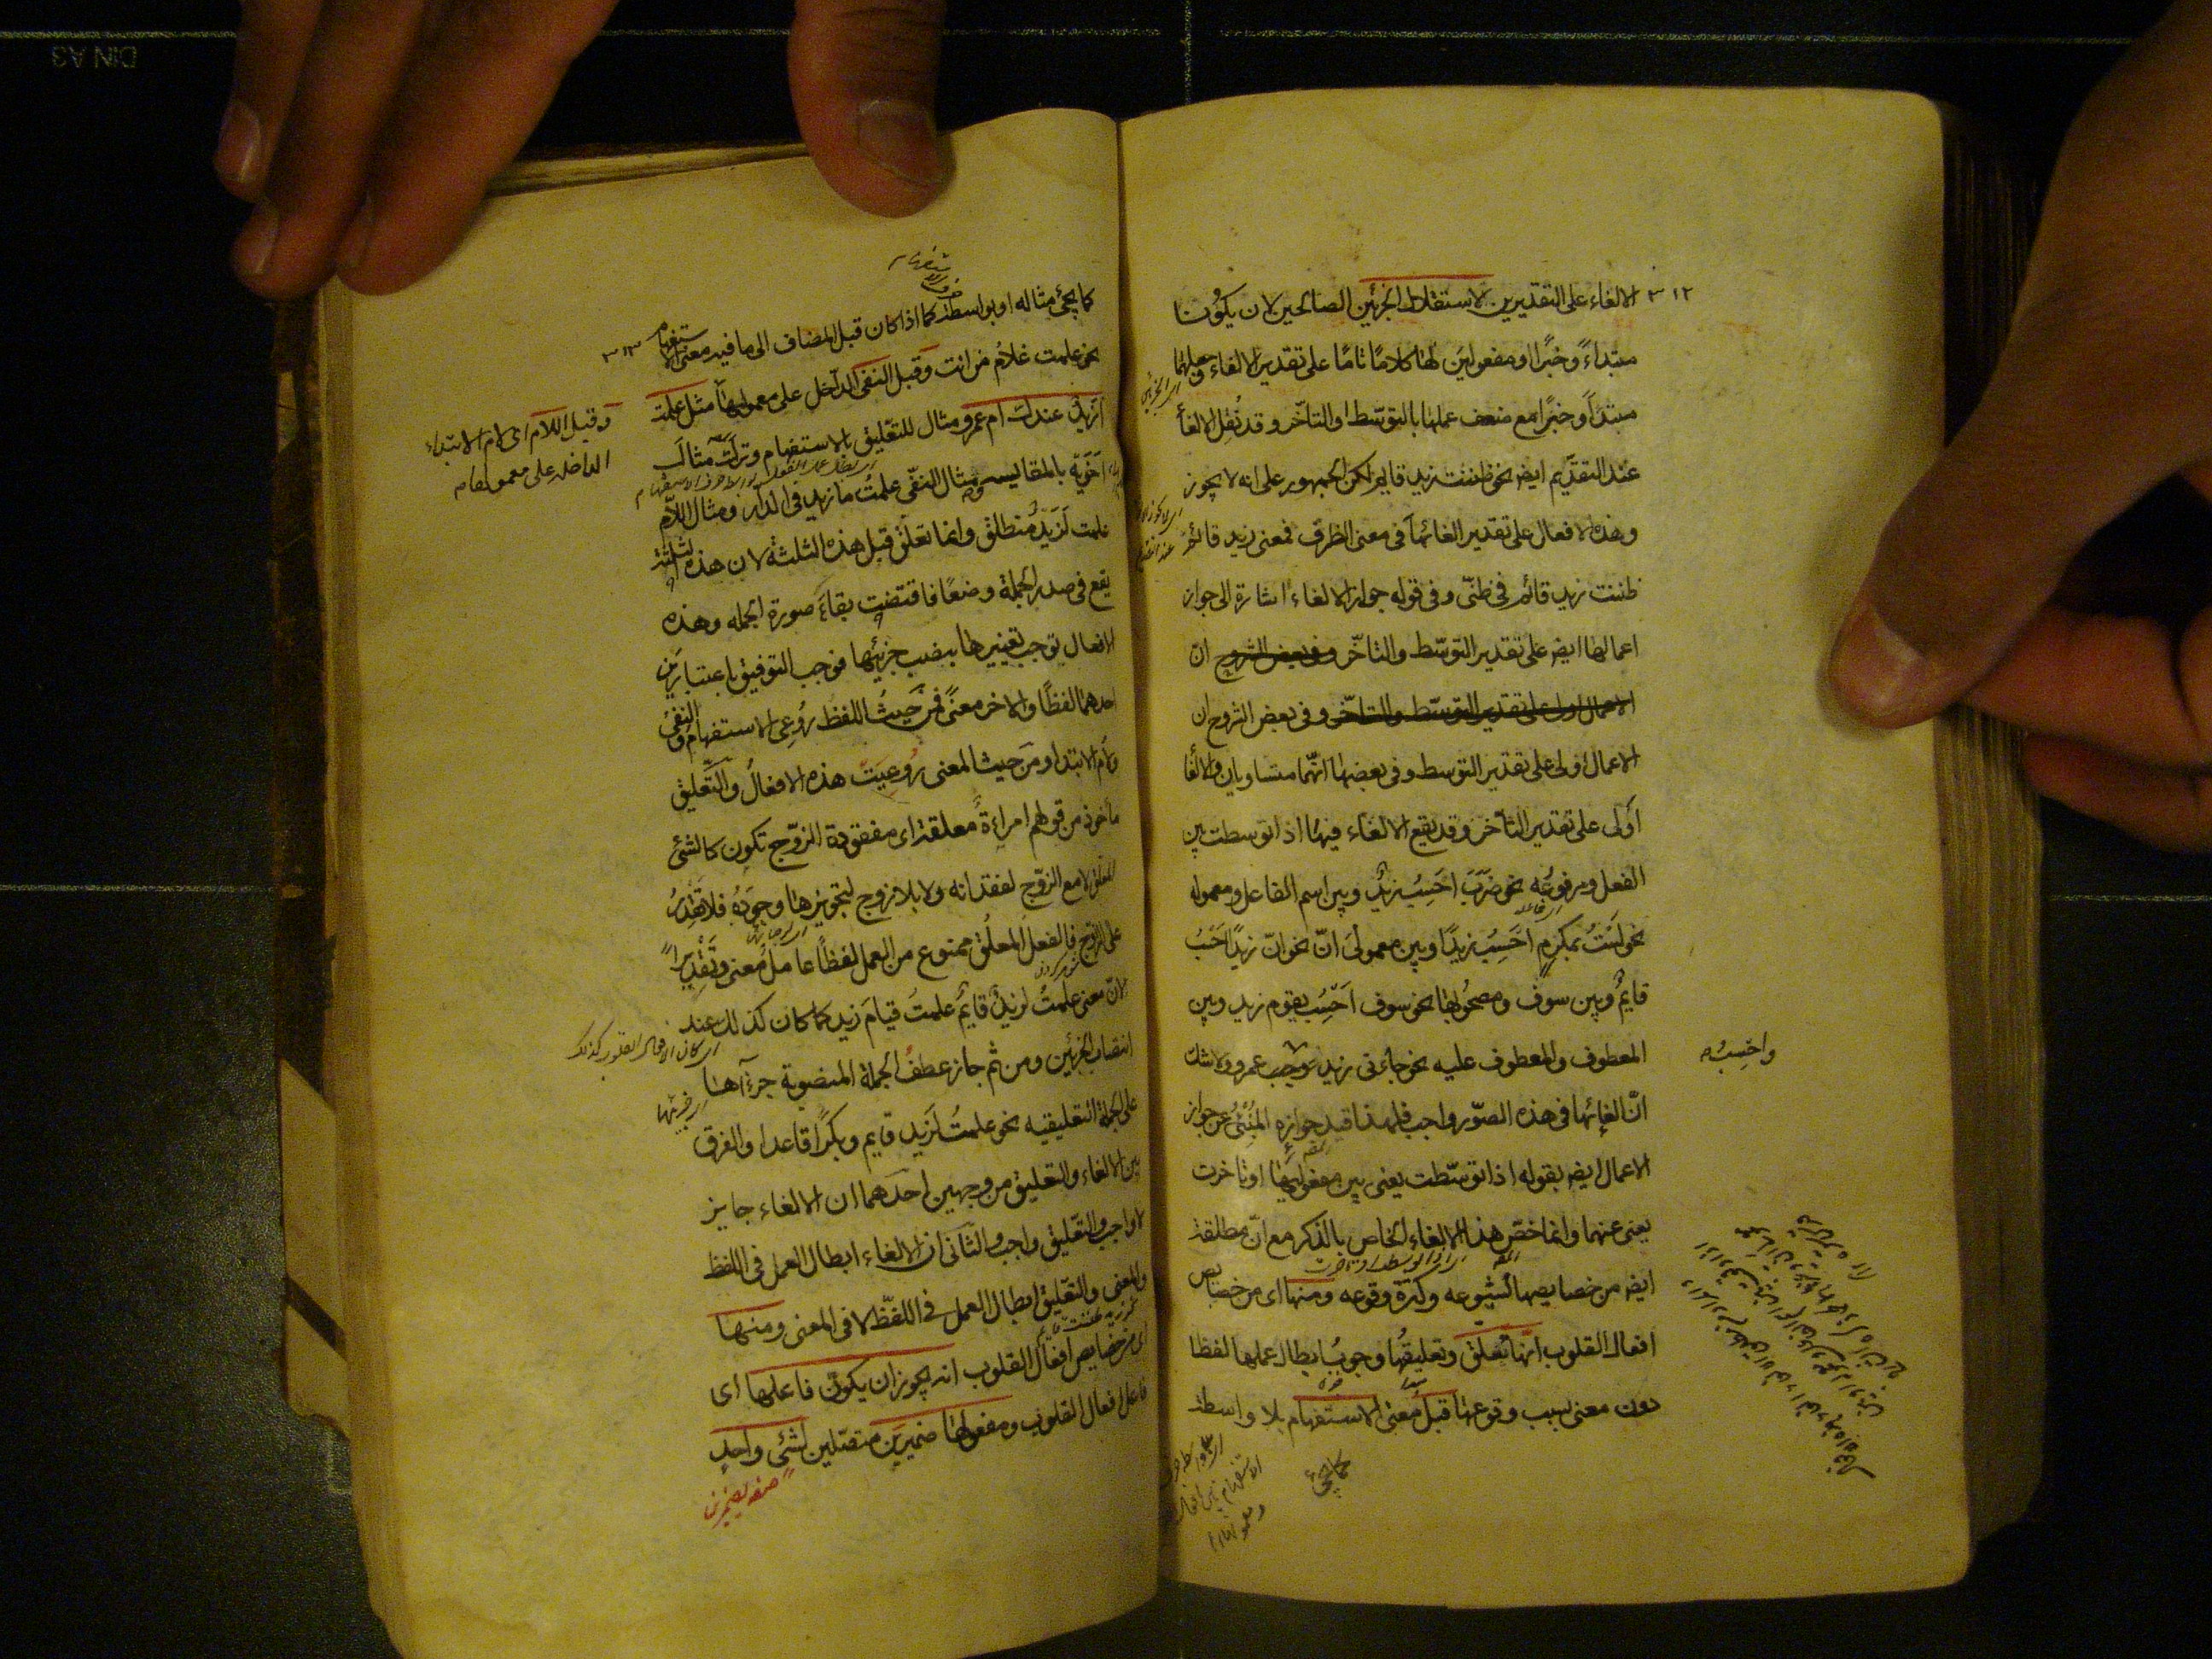 ٣١٢
الالغاء على التقديرين لاستقلال الجزئين الصالحين لان يكونا
مبتداءً وخبرًا او مفعولين لها كلامًا تامًا على تقدير الالغاء وجعلهما
مبتدأ وخبرًا مع ضعف عملها بالتوسّط او التاخّر وقد نُقِل الالغأ
عند التقديم ايضا نحو ظننت زيد قايم لكن الجمهور على انه لا يجوز
وهذه الافعال على تقدير الغائها في معنى الظرف فمعنى زيد قائم
ظننت زيد قائم في ظنّى وفي قوله جواز الالغاء اشارة الى جواز
اعمالها ايضا على تقدير التوسّط والتاخّر وفي بعض الشروح انّ
الاعمال اولى على تقدير التوسّط والتاخّر وفي بعض الشروح ان
الاعمال اولى على تقدير التوسط وفي بعضها انّهما متساويان والالغا
اولى على تقدير التاخر وقد يقع الالغاء فيها اذا توسطت بين
الفعل ومرفوعه نحو ضَرَبَ احسِبُ زيدٌ وبين اسم الفاعل ومعموله
نحو لستُ بمكرم احسِبُ زيدًا وبين معمولى انّ نحو انّ زيدًا احسِبُ
قايمٌ وبين سوف ومصحوبها نحو سوف احسِبُ يقوم زيد وبين
المعطوف والمعطوف عليه نحو جاءنى زيد احسب عمرو ولا شك
واحسِبُ
انّ الغائها في هذه الصّور واجب فلهذا قيد جوازه المُنبئ عن جواز
الاعمال ايضا بقوله اذا توسّطت يعنى بين مفعوليها او تاخرت
يعنى عنهما وانما خصّ هذا الالغاء الخاص بالذكر مع انّ مطلقه
ايضا من خصايصها لشيوعه وكثرة وقوعه ومنها اى من خصايص
افعال القلوب انّها تعلق وتعليقُها وجوبُ ابطال عملها لفظا
دون معنى بسبب وقوعها قبل معنى الاستفهام بلا واسطة
كما يجئ
٣١٣
كما يجئ مثاله او بواسطة كما اذا كان قبل المضاف الى ما فيه معنى الاستفهام
نحو علمت غلامُ من انت وقبل النفى الداخل على معمولها مثل علمت
وقبل اللام اى لام الابتداء
الداخله على معمولها
ازيدٌ عندك ام عمرو مثال للتعليق بالاستفهام وترك مثال
اخويه بالمقايسه ومثال النفى علمتُ ما زيد في الدار ومثال اللّام
علمت لَزيدٌ منطلق وانما تعلق قبل هذه الثلثة لان هذه الثلثة
يقع في صدر الجملة وضعًا فاقتضت بقاءَ صورة الجمله وهذه
الافعال توجب تغييرها بنصب جزئيها فوجب التوفيق باعتبارين
احدهما لفظًا والاخر معنىً فمن حيثُ اللفظ رُوعى الاستفهامُ والنفى
ولام الابتداء ومن حيث المعنى روعيت هذه الافعالُ والتّعليق
ماخوذ من قولهم امراءةٌ مُعلقة اى مفقودة الزّوج تكون كالشئ
المعلق لا مع الزوج لفقدانه ولا بلا زوج لتجويزها وجودَه فلا تقدِرُ
على التزوج فالفعل المعلق ممنوع من العمل لفظًا عامل معنى وتقديرًا
لانّ معنى علمتُ لزيدٌ قايمٌ علمتُ قيامَ زيد كما كان كذلك عند
انتصاب الجزئين ومن ثم جاز عطف الجملة المنصوبة جزءاها
على الجملة التعليقيه نحو علمتُ لَزيد قايم وبكرًا قاعدا والفرق
بين الالغاء والتعليق من وجهين احدهما ان الالغاء جايز
لا واجب والتّعليق واجب والثانى ان الالغاء ابطال العمل في اللفظ
والمعنى والتعليق ابطال العمل في اللفظ لا في المعنى ومنها
اى من خصايص افعال القلوب انه يجوز ان يكون فاعلها اى
فاعل افعال القلوب ومفعولها ضميرين متصلين لشئ واحدٍ
صفه لضميرين